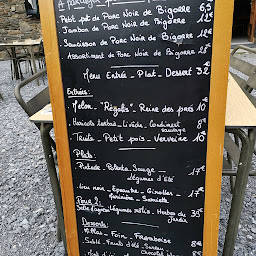 A partager
Petit pâté de Porc Noir de Bigorre 6,5
Jambon de Porc Noir de Bigorre 12€
Saucisson de Porc Noir de Bigorre
Assortiment de Porc Noir de Bigorre 18€
Menu Entrée - Plat - Dessert 32€
Entrées:
Melon - "Régalis" - Reine des prés 10€
Haricots - Livèche - Condiment 8€
sauvage
Truite - Petit pois - Verveine 10€
Plats:
Pintade - Polenta - Sauge - 17€
Légumes d'été
Épeautre - Girolles - 17€
Sarriette
Pour 2:
Légumes rôtis - Herbes du 39€
Jardin
Desserts:
Millas - Foin - Framboise
Sablé - Fruits d'été - Sureau 8€
Chocolat 9€